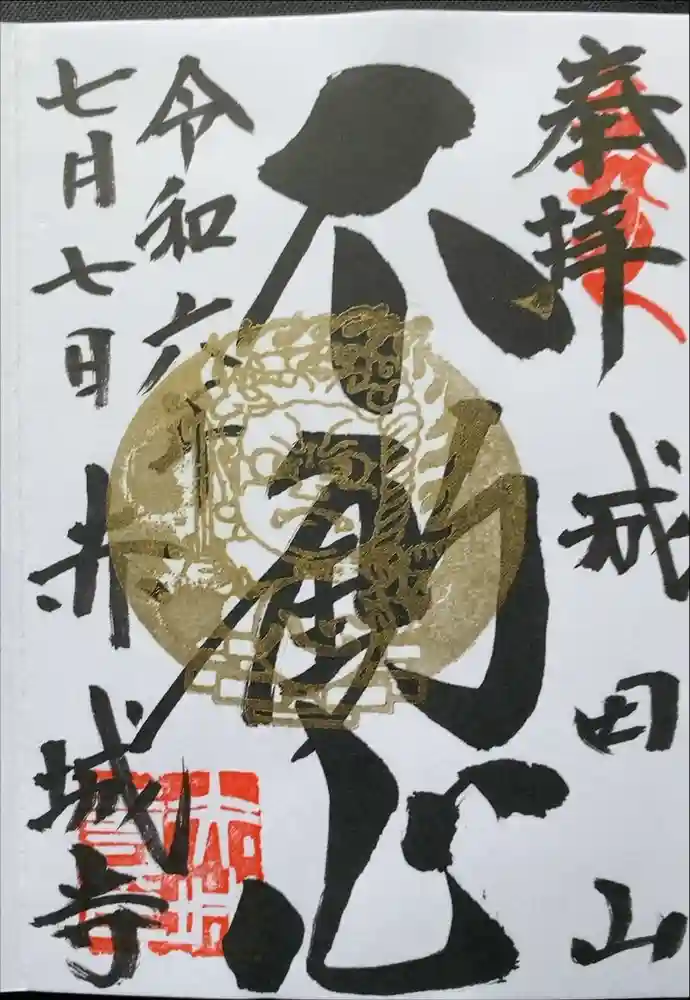 奉拝 成田山
不動心
令和六年
七月七日 赤城寺